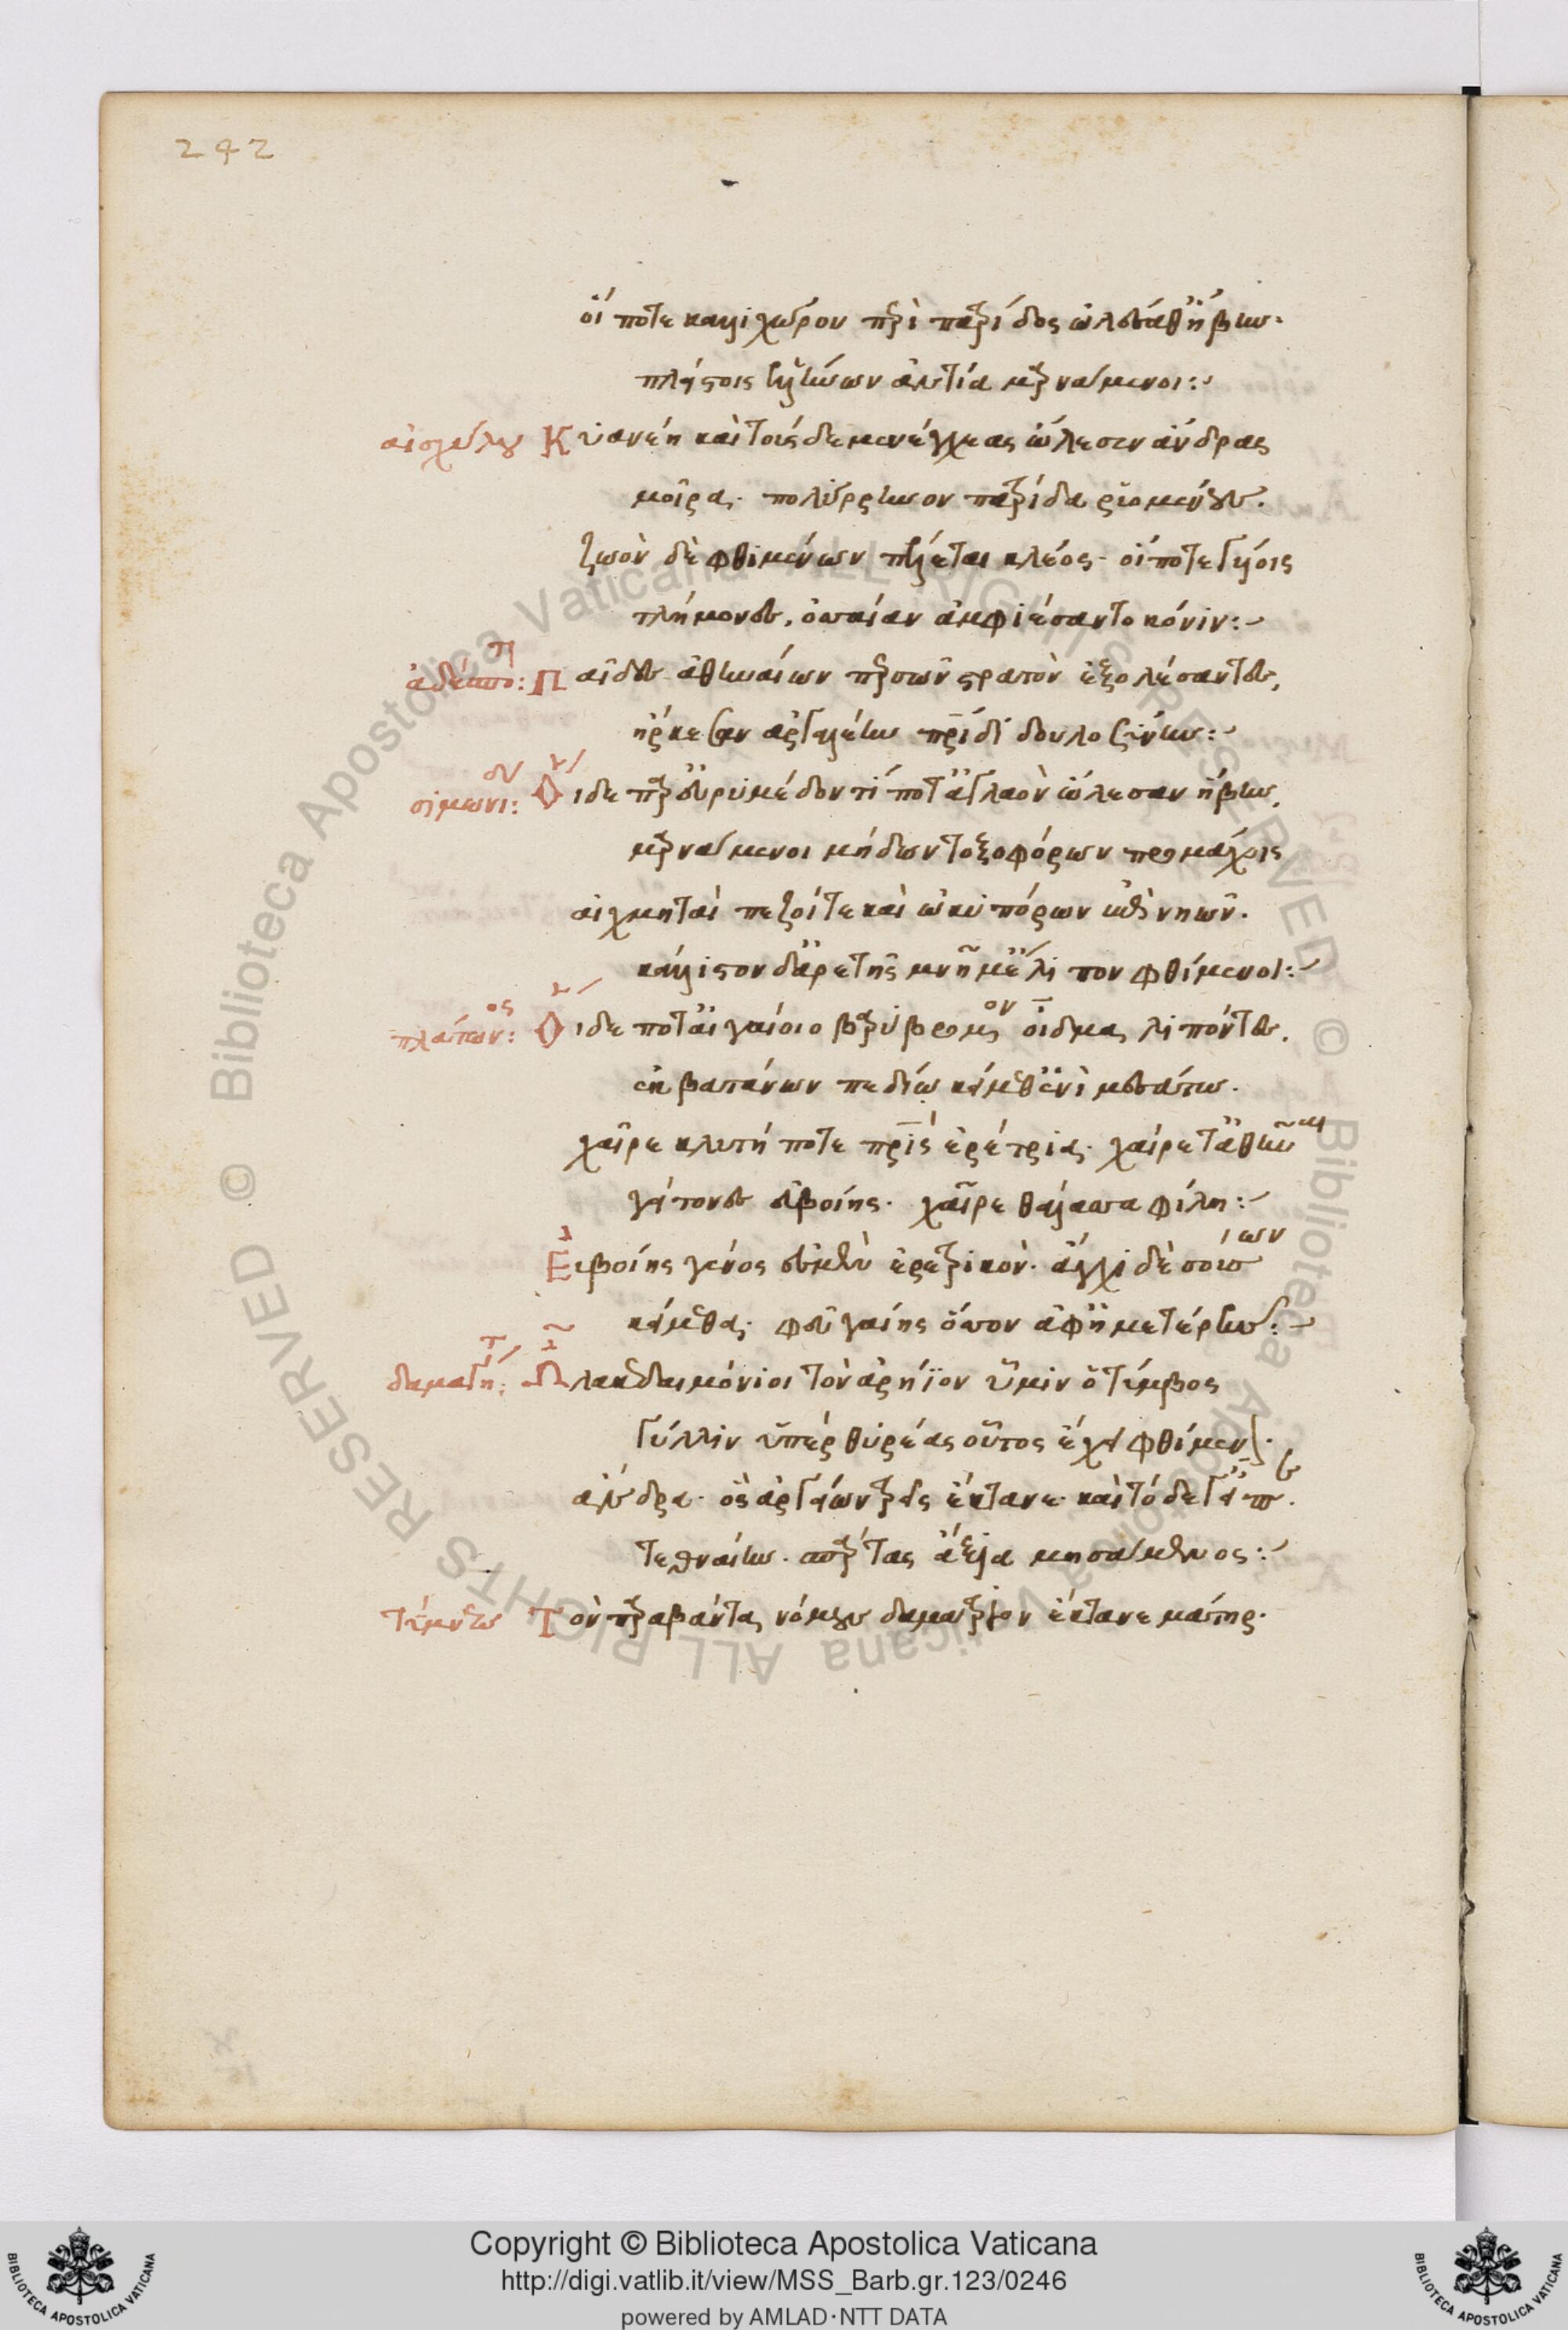 242
οἵ ποτε καλλιχόρου περὶ πατρίδος ὠλέσαθ' ἥβην·
πλείστοις ἑλλήνων ἀντία μαρνάμενοι:~
αἰσχύλου Κυανέη καὶ τούσδε μενέγχεας ὤλεσεν ἄνδρας
μοῖρα· πολύρρηνον πατρίδα ῥυομένους.
ζωὸν δὲ φθιμένων πέλεται κλέος· οἵ ποτε γυίοις
τλήμονες, ὀσσαίαν ἀμφιέσαντο κόνιν:~
ἀδέσποτ: Παῖδες ἀθηναίων περσῶν στρατὸν ἐξολέσαντες,
ἤρκεσαν ἀργαλέην πατρίδι δουλοσύνην:~
σιμωνίδου: Οἵδε παρ' εὐρυμέδοντί ποτ' ἀγλαὸν ὤλεσαν ἥβην,
μαρνάμενοι μήδων τοξοφόρων προμάχοις
αἰχμηταὶ πεζοί τε καὶ ὠκυπόρων ἐπὶ νηῶν·
κάλλιστον δ' ἀρετῆς μνῆμ' ἔλιπον φθίμενοι:~
πλάτωνος: Οἵδε ποτ' αἰγαίοιο βαρύβρομον οἶδμα λιπόντες,
ἐκβατάνων πεδίω κείμεθ' ἐνὶ μεσάτω·
χαῖρε κλυτή ποτε πατρὶς ἐρέτρια· χαίρετ' ἀθῆναι
γείτονες εὐβοίης· χαῖρε θάλασσα φίλη:~
Εὐβοίης γένος ἐσμὲν ἐρετρικόν· ἄγχι δὲ σούσων
κείμεθα· φεῦ γαίης ὅσσον ἀφ' ἡμετέρης:~
δαμαγήτ: Ὦ λακεδαιμόνιοι τὸν ἀρήϊον ὔμιν ὁ τύμβος
γύλλιν ὑπὲρ θυρέας οὗτος ἔχει φθίμενον·
ἄνδρα· ὃς ἀργείων τρεῖς ἔκτανε· καὶ τόδε γ' εἶπε.
τεθναίην· σπάρτας ἄξια μησάμενος:~
τύμνεω Τὸν παραβάντα νόμους δαμάτριον ἔκτανε μάτηρ·
Copyright © Biblioteca Apostolica Vaticana
http://digi.vatlib.it/view/MSS_Barb.gr.123/0246
powered by AMLAD·NTT DATA